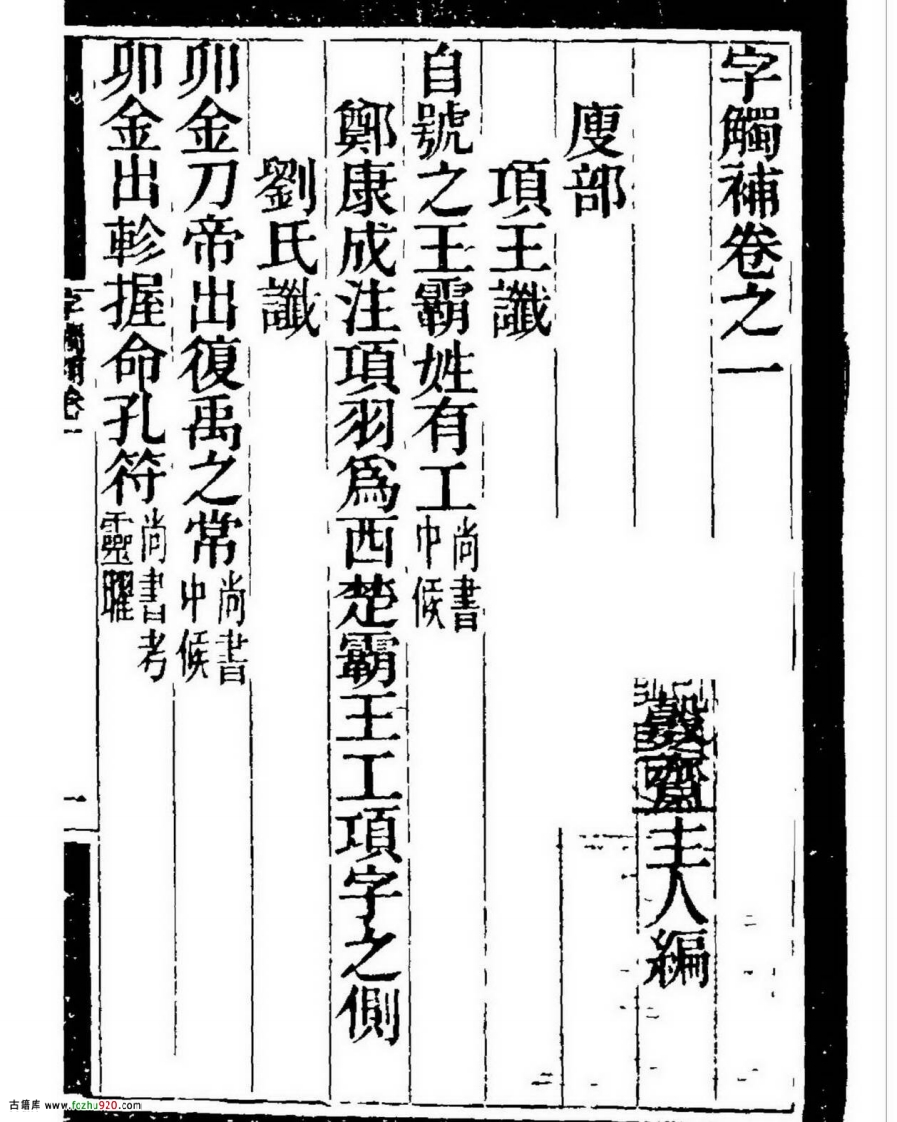 字觸補卷之一
齋主人編
廋部
項王讖
自號之王霸姓有工尚書中候
鄭康成注項羽爲西楚霸王工項字之側
劉氏讖
卯金刀帝出復禹之常尚書中候
卯金出軫握命孔符尚書考靈曜
字觸補卷一
一
古籍库 www.fczhu920.com